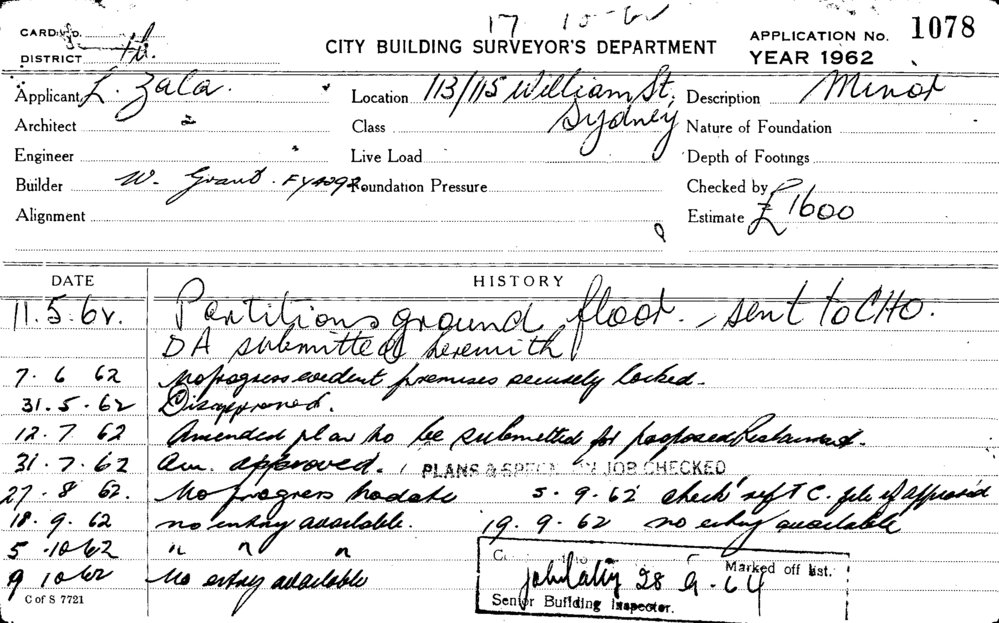 17 10-62
CARDING. CITY BUILDING SURVEYOR'S DEPARTMENT APPLICATION No. 1078
DISTRICT YEAR 1962
Applicant L. Zala. Location 113/115 William St, Sydney Description Minor
Architect Class Nature of Foundation
Engineer Live Load Depth of Footings
Builder W. Grant. FY4292 Foundation Pressure Checked by
Alignment Estimate £1600
DATE HISTORY
11.5.62. Partitions ground floor. - sent to CHO.
DA submitted herewith
7. 6 62 No progress evident premises securely locked.
31.5.62 Disapproved.
12.7 62 Amended plan to be submitted for proposed Restaurant.
31.7.62 Am. approved. PLANS & SPECS. ON JOB CHECKED
27.8 62. No progress to date 5.9.62 check T.C. file if approved
18.9.62 no entry available. 19.9.62 no entry available
5.10 62 " " "
9 10 62 No entry available
Marked off list.
28 9.64
C of S 7721 Senior Building Inspector.